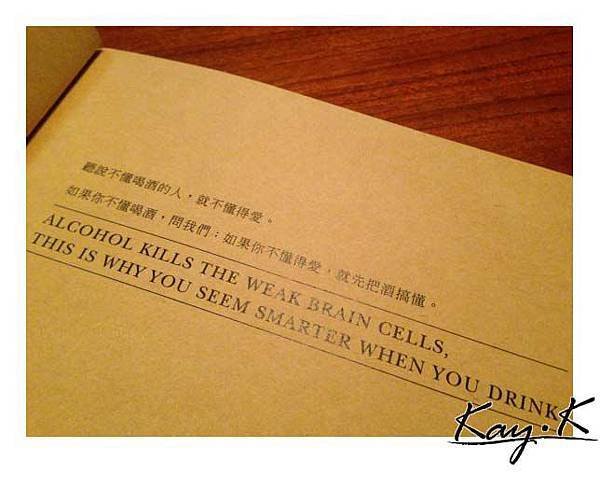 聽說不懂喝酒的人，就不懂得愛。
如果你不懂喝酒，問我們；如果你不懂得愛，就先把酒搞懂。
ALCOHOL KILLS THE WEAK BRAIN CELLS,
THIS IS WHY YOU SEEM SMARTER WHEN YOU DRINK
Kay.K